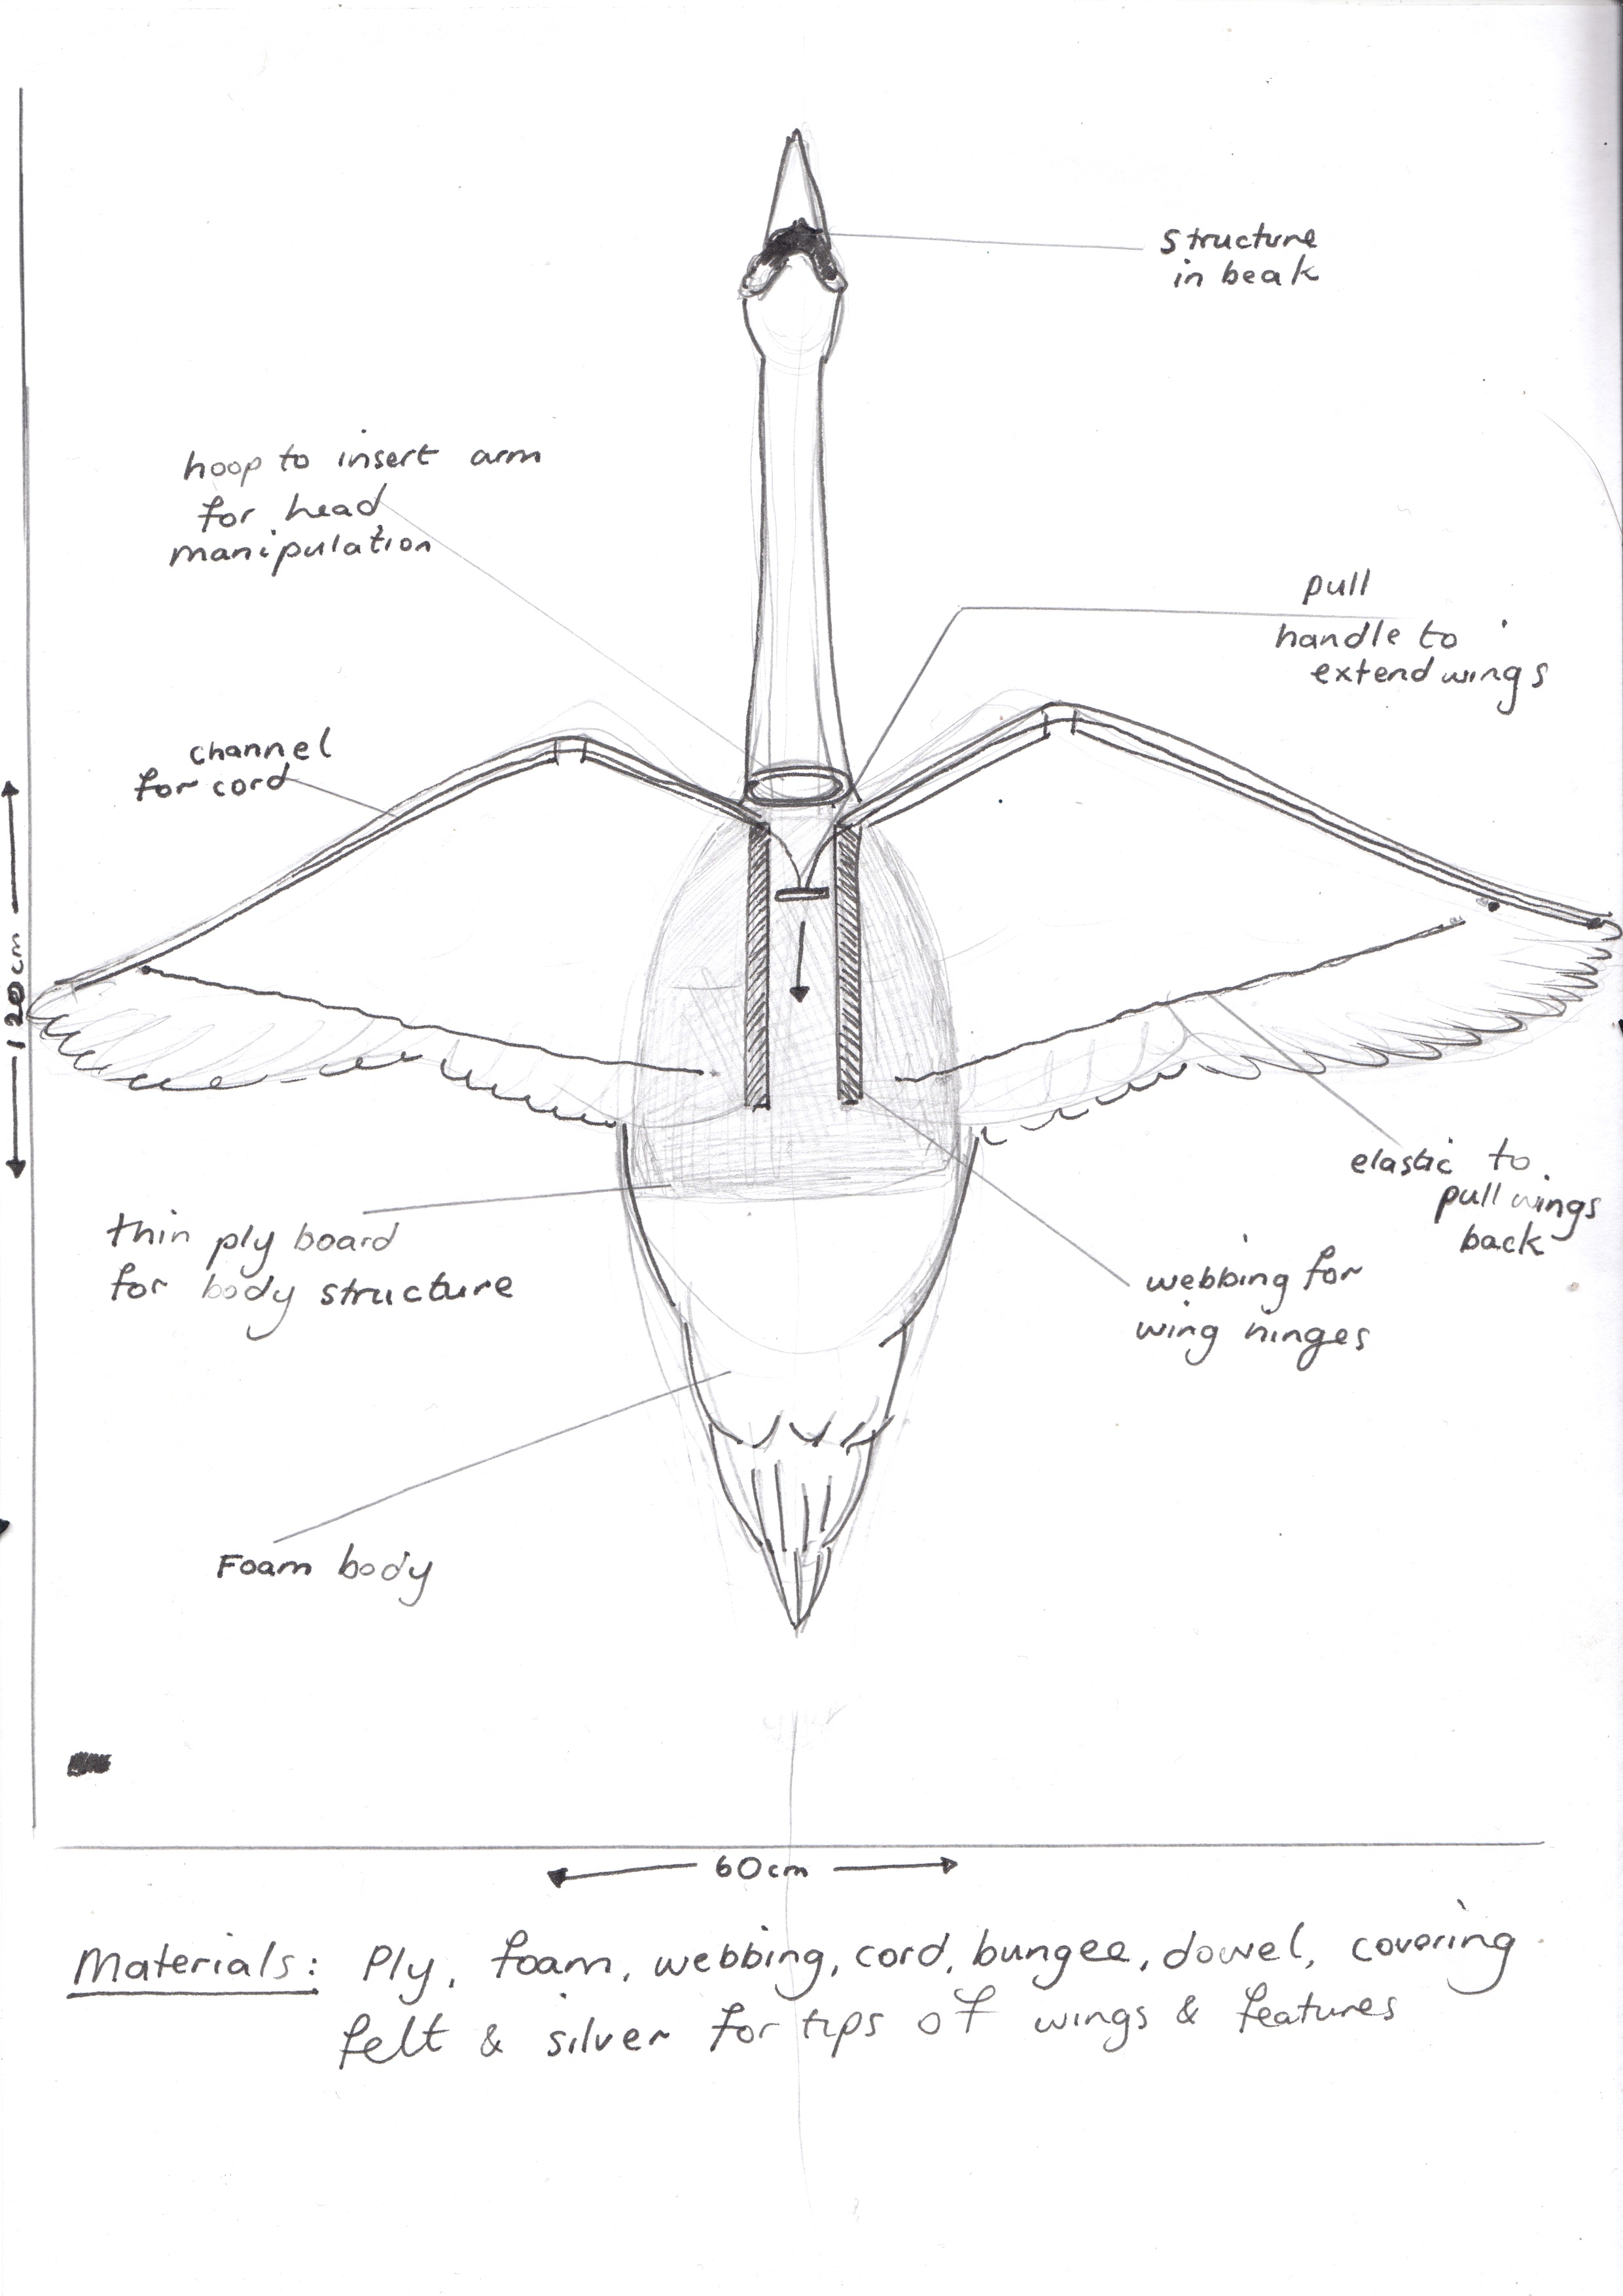 structure
in beak
hoop to insert arm
for head
manipulation
pull
handle to
extend wings
channel
for cord
120cm
elastic to
pull wings
back
thin ply board
for body structure
webbing for
wing hinges
Foam body
60cm
Materials: Ply, foam, webbing, cord, bungee, dowel, covering
felt & silver for tips of wings & features